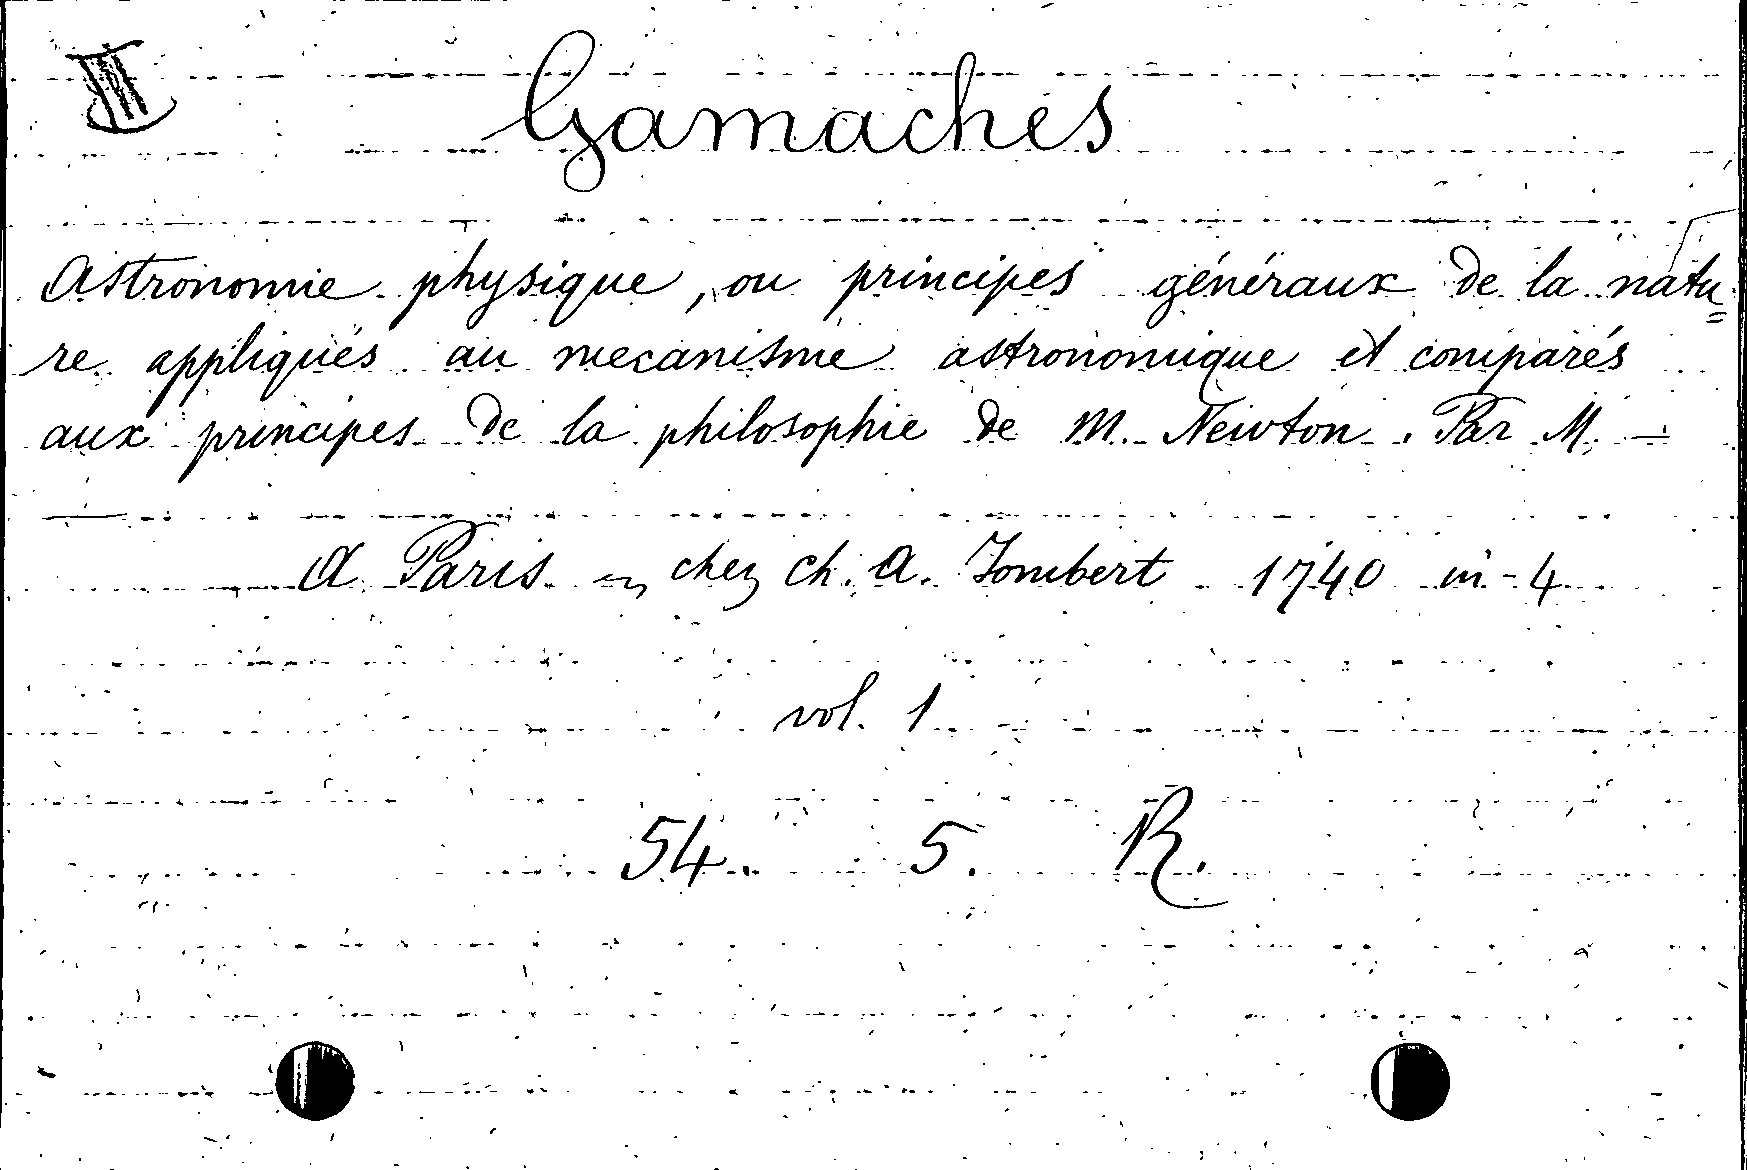 III
Gamaches
Astronomie physique, ou principes généraux de la natu=
re appliqués au mecanisme astronomique et comparés
aux principes de la philosophie de M. Newton. Par M. —
A Paris chez Ch. A. Jombert 1740 in-4
vol. 1
54. 5. R.